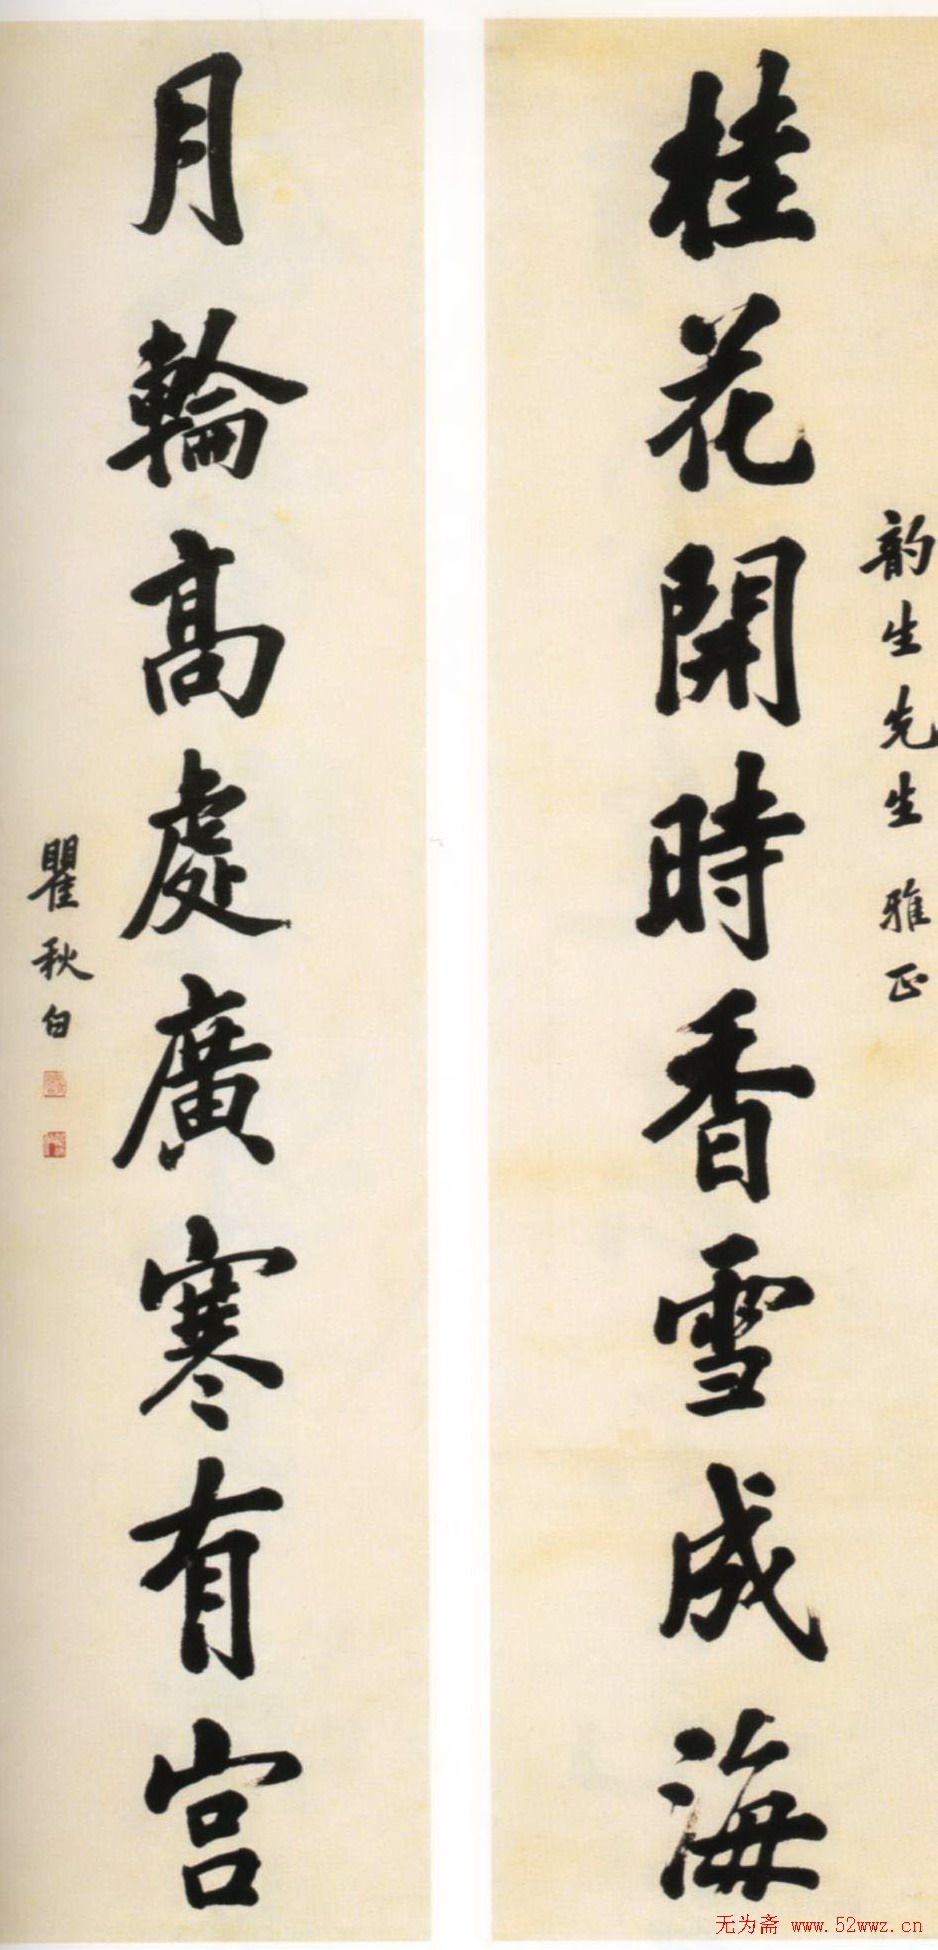 韵生先生雅正
桂花開時香雪成海
月輪高處廣寒有宮
瞿秋白
无为斋 www.52wwz.cn